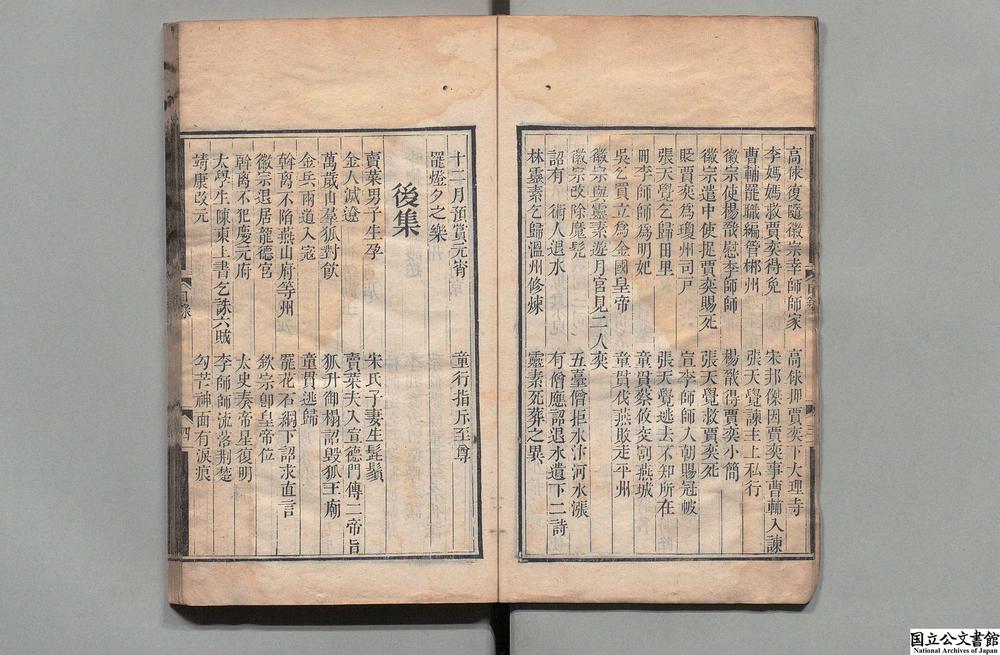 高俅復隨徽宗幸師師家 高俅押賈奕下大理寺
李媽媽救賈奕得免 宋邦傑因賈奕事曹輔入諫
曹輔罷職編管郴州 張天覺諫主上私行
徽宗使楊戩慰李師師 楊戩得賈奕小簡
徽宗遣中使捉賈奕賜死 張天覺救賈奕死
貶賈奕爲瓊州司戸 宣李師師入朝賜冠帔
張天覺乞歸田里 張天覺逃去不知所在
冊李師師爲明妃 童貫蔡攸交割燕城
吳乞買立爲金國皇帝 童貫伐燕敗走平州
徽宗與靈素遊月宮見二人奕
徽宗改除魔髡 五臺僧拒水汴河水漲
詔有術人退水 有僧應詔退水遺下二詩
林靈素乞歸溫州修煉 靈素死葬之異
目錄
三
十二月預賞元宵 童行指斥至尊
罷燈夕之樂
後集
賣菜男子生孕 宋氏子妻生髭鬚
金人滅遼 賣菜夫入宣德門傳二帝旨
萬歲山羣狐對飲 狐升御榻詔毀狐王廟
金兵兩道入寇 童貫逃歸
斡离不陷燕山府等州 罷花石綱下詔求直言
徽宗退居龍德宮 欽宗卽皇帝位
斡离不犯慶元府 太史奏帝星復明
太學生陳東上書乞誅六賊 李師師流落荆楚
靖康改元 勾芒神面有淚痕
目錄
四
国立公文書館
National Archives of Japan